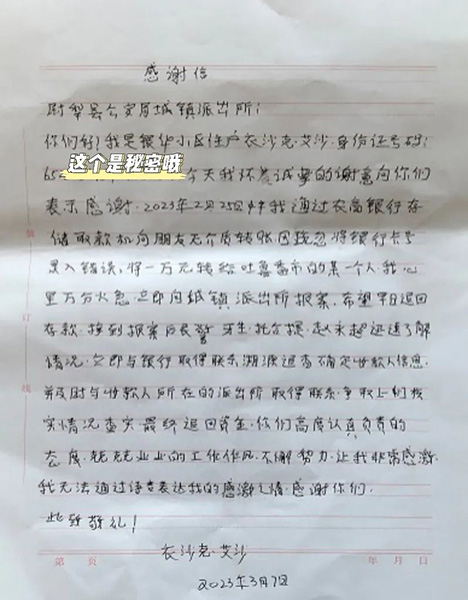 感谢信
尉犁县公安局城镇派出所：
你们好！我是银华小区住户衣沙克·艾沙·身份证号码：
这个是秘密哦
65 今天我怀着诚挚的谢意向你们
表示感谢·2023年2月25日 我通过农商银行存
储取款机向朋友无介质转账因疏忽将银行卡号
录入错误，将一万元转给吐鲁番市的某一个人·我心
里万分火急·立即向城镇派出所报案，希望早日追回
存款·接到报案后民警 牙生·托合提·赵永超迅速了解
情况·立即与银行取得联系溯源追查确定收款人信息·
并及时与收款人所在的派出所取得联系·争取上门核
实情况查实最终追回资金·你们高度认真负责的
态度·兢兢业业的工作作风·不懈努力·让我非常感激·
我无法通过语言表达我的感激之情·感谢你们·
此致敬礼！
衣沙克·艾沙
第 页 年 月 日
2023年3月7日
装
订
线